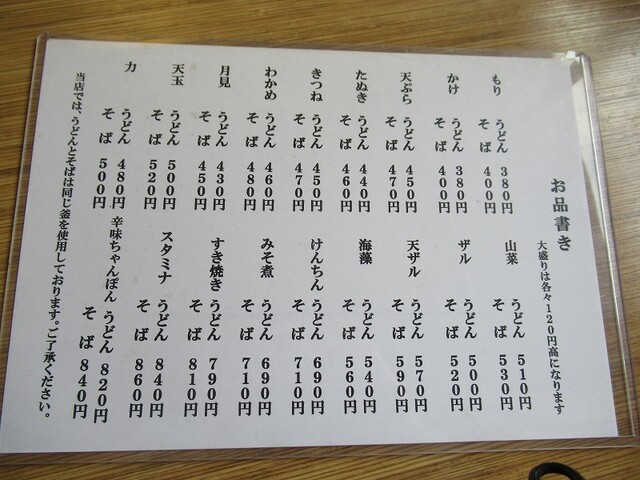 お品書き
大盛りは各々120円高になります
もり うどん 380円
そば 400円
かけ うどん 380円
そば 400円
天ぷら うどん 450円
そば 470円
たぬき うどん 440円
そば 460円
きつね うどん 450円
そば 470円
わかめ うどん 460円
そば 480円
月見 うどん 430円
そば 450円
天玉 うどん 500円
そば 520円
力 うどん 480円
そば 500円
山菜 うどん 510円
そば 530円
ザル うどん 500円
そば 520円
天ザル うどん 570円
そば 590円
海藻 うどん 540円
そば 560円
けんちん うどん 690円
そば 710円
みそ煮 うどん 690円
そば 710円
すき焼き うどん 790円
そば 810円
スタミナ うどん 840円
そば 860円
辛味ちゃんぽん うどん 820円
そば 840円
当店では、うどんとそばは同じ釜を使用しております。ご了承ください。